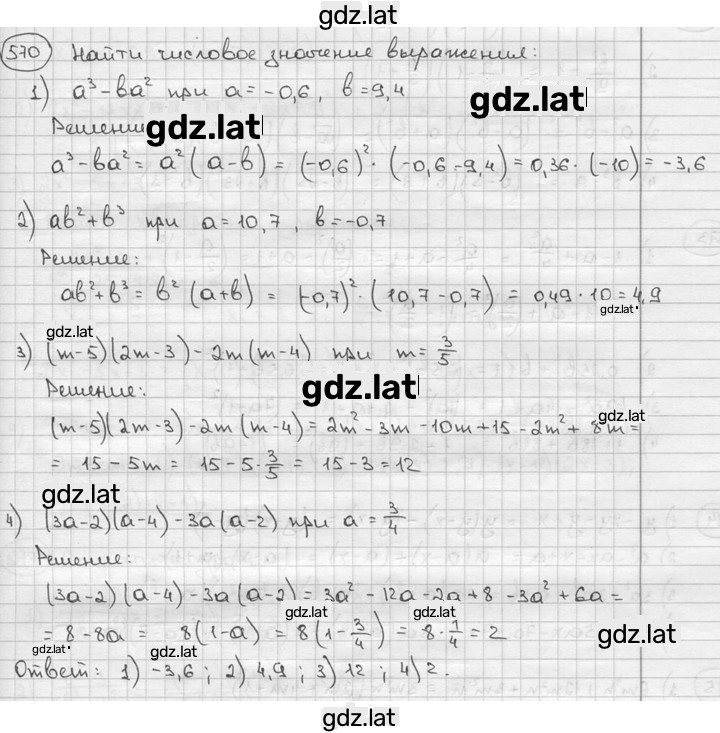 gdz.lat
570 Найти числовое значение выражения:
1) a³ - ba² при a = -0,6, b = 9,4
gdz.lat
Решени
gdz.lat
a³ - ba² = a² (a - b) = (-0,6)² · (-0,6 - 9,4) = 0,36 · (-10) = -3,6
2) ab² + b³ при a = 10,7, b = -0,7
Решение:
ab² + b³ = b² (a + b) = (-0,7)² · (10,7 - 0,7) = 0,49 · 10 = 4,9
gdz.lat
gdz.lat
3) (m - 5)(2m - 3) - 2m(m - 4) при m = 3/5
Решение:
gdz.lat
gdz.lat
(m - 5)(2m - 3) - 2m(m - 4) = 2m² - 3m - 10m + 15 - 2m² + 8m =
= 15 - 5m = 15 - 5 · 3/5 = 15 - 3 = 12
gdz.lat
4) (3a - 2)(a - 4) - 3a(a - 2) при a = 3/4
Решение:
(3a - 2)(a - 4) - 3a(a - 2) = 3a² - 12a - 2a + 8 - 3a² + 6a =
gdz.lat
gdz.lat
= 8 - 8a = 8(1 - a) = 8(1 - 3/4) = 8 · 1/4 = 2
gdz.lat
gdz.lat
gdz.lat
Ответ: 1) -3,6; 2) 4,9; 3) 12; 4) 2.
gdz.lat